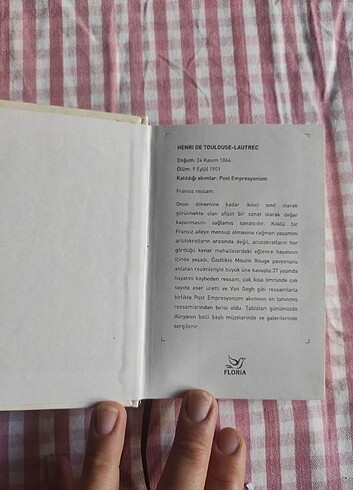 HENRI DE TOULOUSE-LAUTREC
Doğum: 24 Kasım 1864
Ölüm: 9 Eylül 1901
Katıldığı akımlar: Post Empresyonizm
Fransız ressam.
Onun dönemine kadar ikinci sınıf olarak
görülmekte olan afişin bir sanat olarak değer
kazanmasını sağlamış sanatçıdır. Köklü bir
Fransız aileye mensup olmasına rağmen yaşamını
aristokratların arasında değil, aristokratların hor
gördüğü kenar mahallelerdeki eğlence hayatının
içinde yaşadı. Özellikle Moulin Rouge pavyonunu
anlatan resimleriyle büyük üne kavuştu. 37 yaşında
hayatını kaybeden ressam, çok kısa ömründe çok
sayıda eser üretti ve Van Gogh gibi ressamlarla
birlikte Post Empresyonizm akımının en tanınmış
ressamlarından birisi oldu. Tabloları günümüzde
dünyanın belli başlı müzelerinde ve galerilerinde
sergilenir.
FLORIA